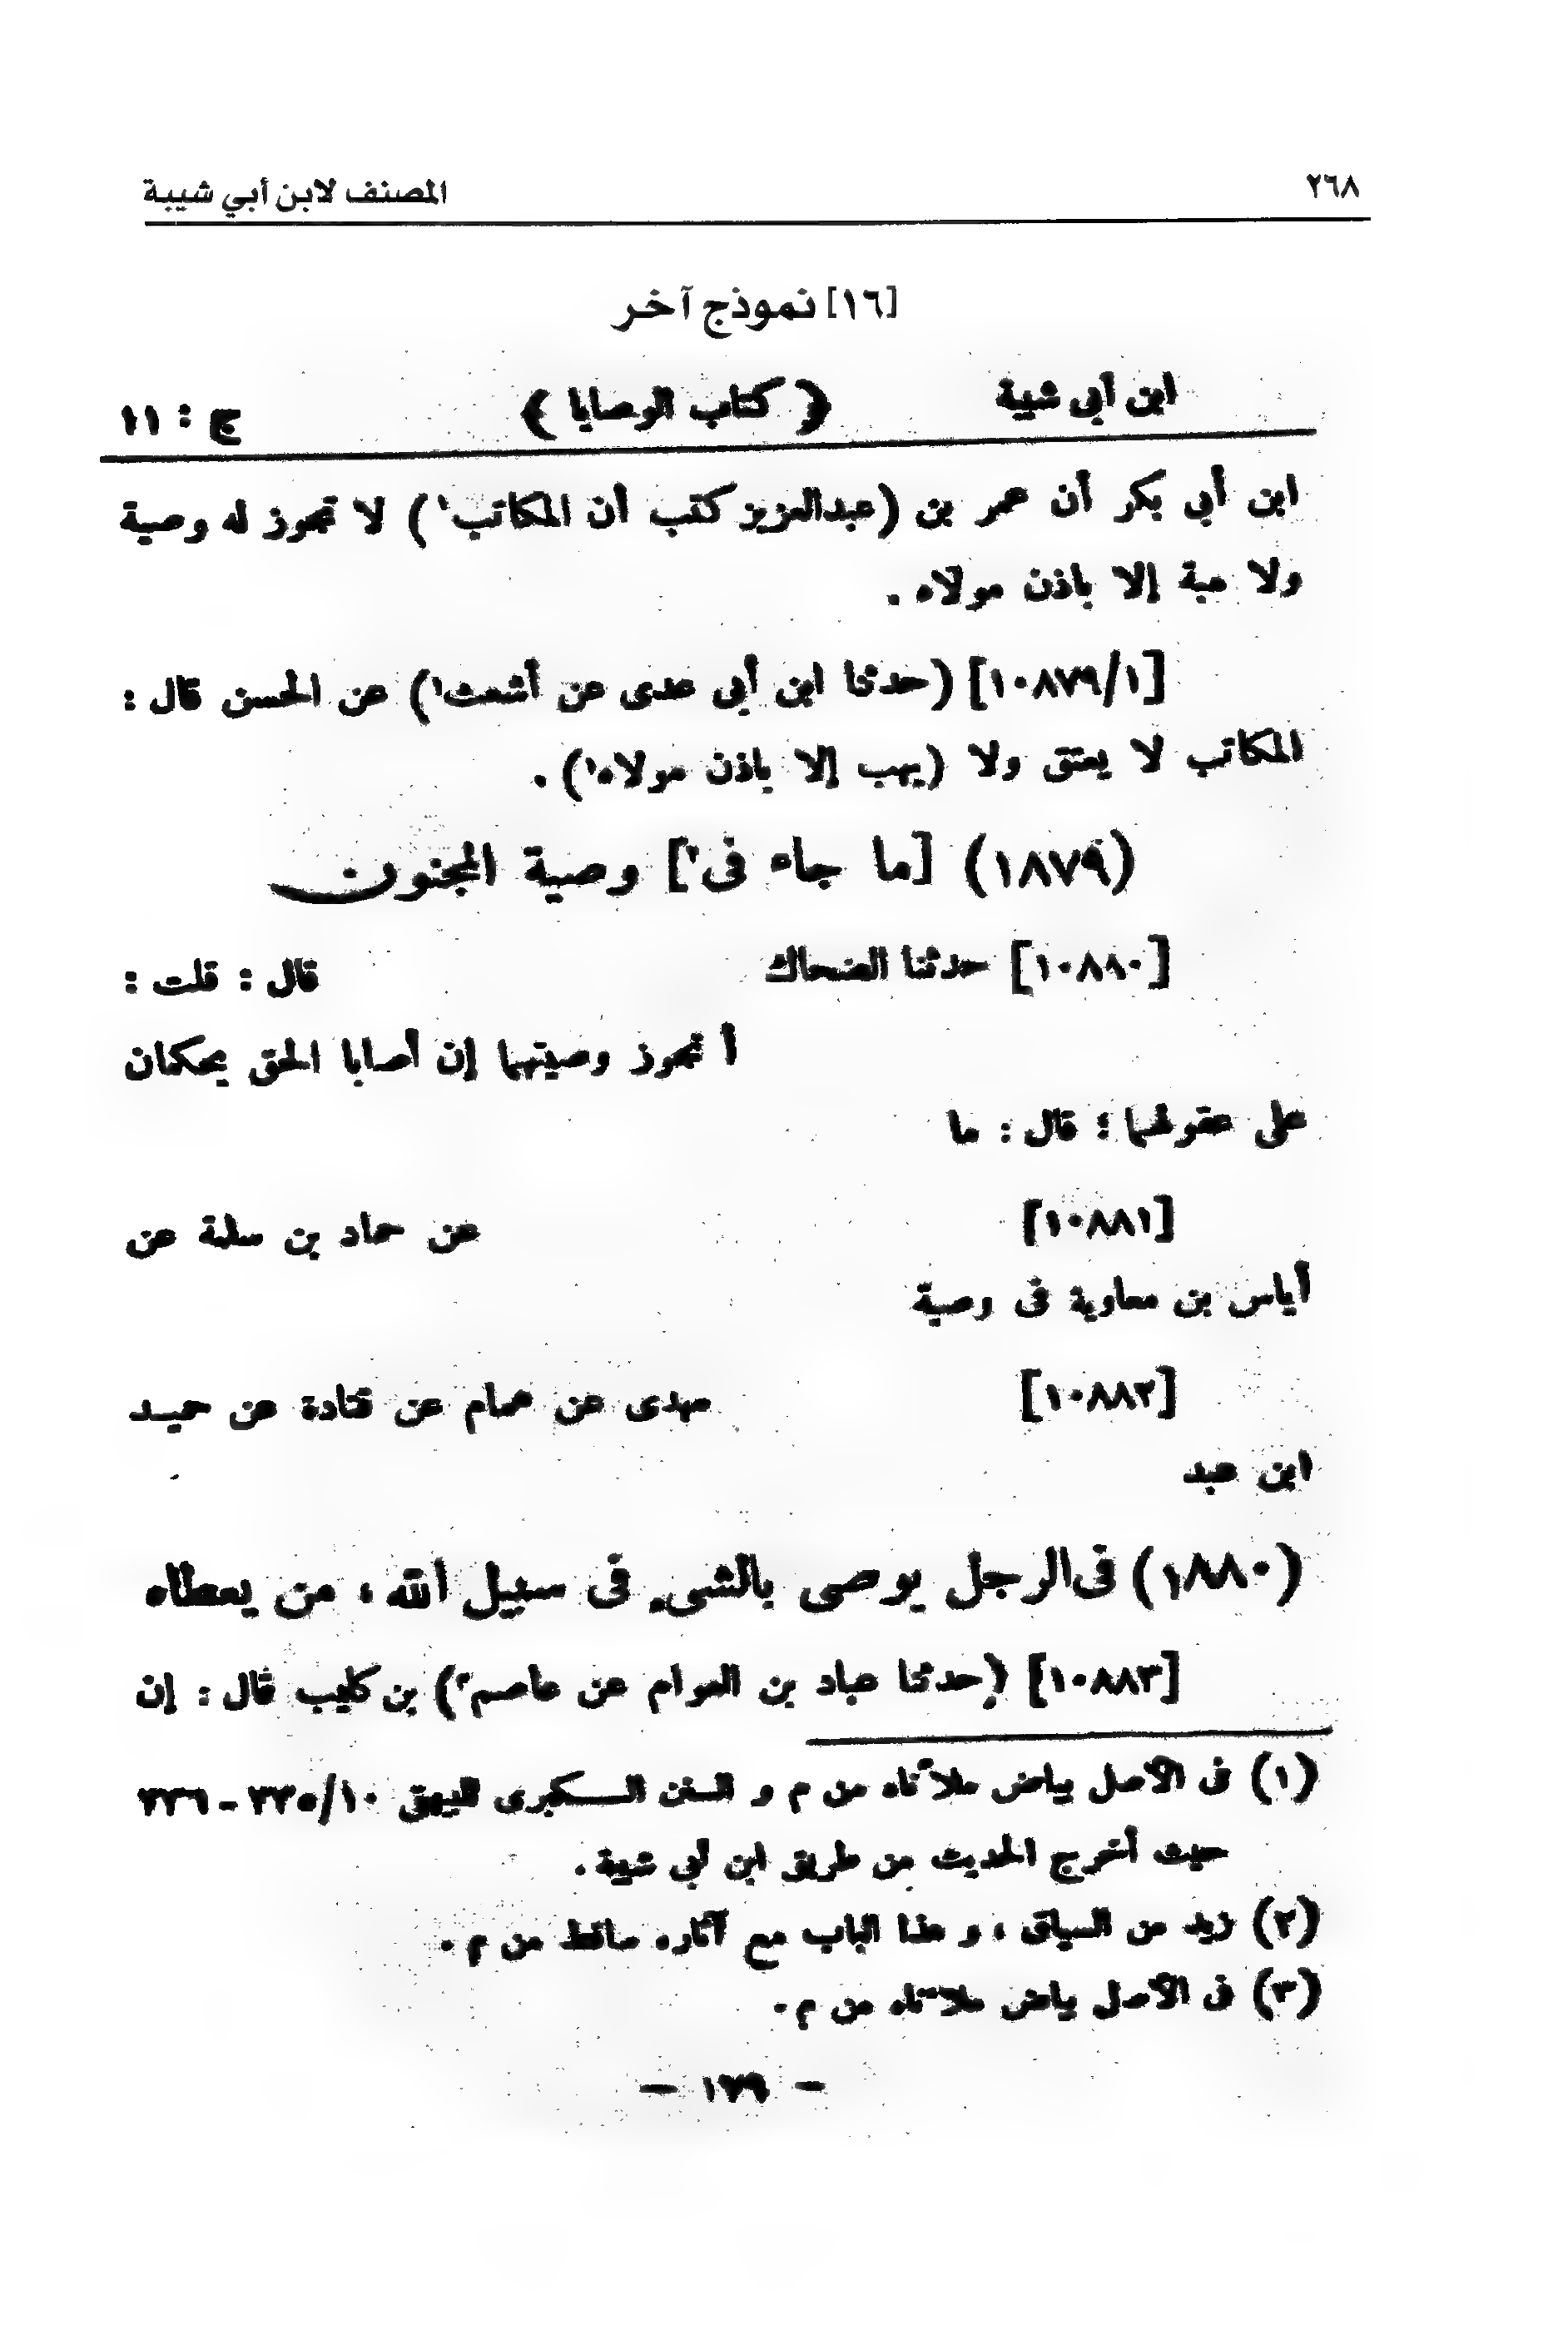 ٢٦٨ المصنف لابن أبي شيبة
[١٦] نموذج آخر
ابن أبى شيبة ( كتاب الوصايا ) ج : ١١
ابن أبى بكر أن عمر بن (عبدالعزيز كتب أن المكاتب١) لا تجوز له وصية
ولا هبة إلا باذن مولاه .
[١٠٨٧٩/١] (حدثنا ابن أبى عدى عن أشعث١) عن الحسن قال :
المكاتب لا يعتق ولا (يهب إلا باذن مولاه١) .
(١٨٧٩) [ما جاء فى٢] وصية المجنون
[١٠٨٨٠] حدثنا الضحاك قال : قلت :
أ تجوز وصيتهما إن أصابا الحق يحكمان
على عقولهما ؛ قال : ما
[١٠٨٨١] عن حماد بن سلمة عن
أياس بن معاوية فى وصية
[١٠٨٨٢] مهدى عن همام عن قتادة عن حميد
ابن عبد
(١٨٨٠) فى الرجل يوصى بالشىء فى سبيل الله ، من يعطاه
[١٠٨٨٣] (حدثنا عباد بن العوام عن عاصم٣) بن كليب قال : إن
(١) فى الأصل بياض ملأناه من م و السنن الكبرى للبيهقى ٣٣٥/١٠ - ٣٣٦
حيث أخرج الحديث من طريق ابن أبى شيبة .
(٢) زيد من السياق ، و هذا الباب مع آثاره ساقط من م .
(٣) فى الأصل بياض ملأناه من م .
– ١٧٩ –